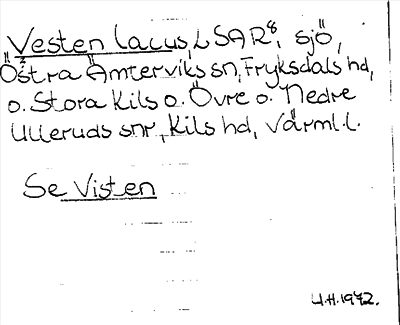 Vesten lacus, LSAR⁸, sjö,
Östra Ämterviks sn, Fryksdals hd,
o. Stora Kils o. Övre o. Nedre
Ulleruds snr, Kils hd, Värml.l.
Se Visten
U.H.1972.